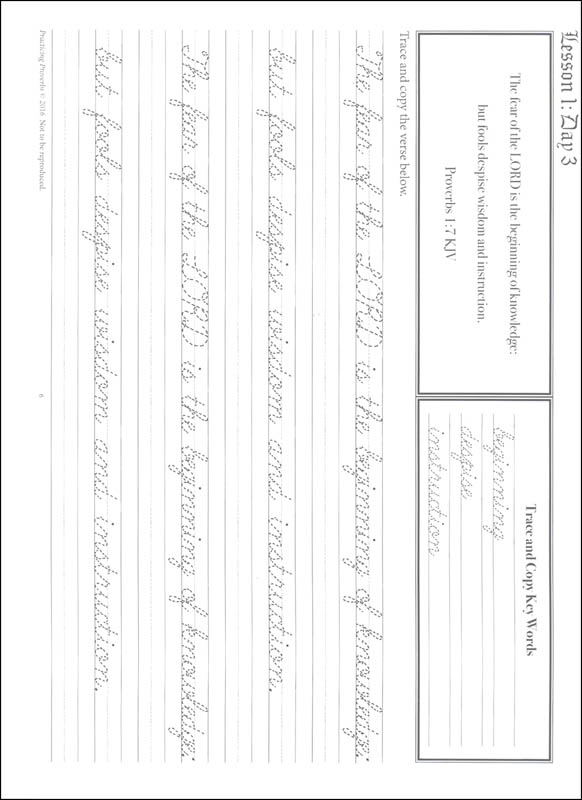 Lesson 1: Day 3
The fear of the LORD is the beginning of knowledge:
but fools despise wisdom and instruction.
Proverbs 1:7 KJV
Trace and Copy Key Words
beginning
despise
instruction
Trace and copy the verse below.
The fear of the LORD is the beginning of knowledge:
but fools despise wisdom and instruction.
The fear of the LORD is the beginning of knowledge:
but fools despise wisdom and instruction.
Practicing Proverbs © 2016 Not to be reproduced.
6